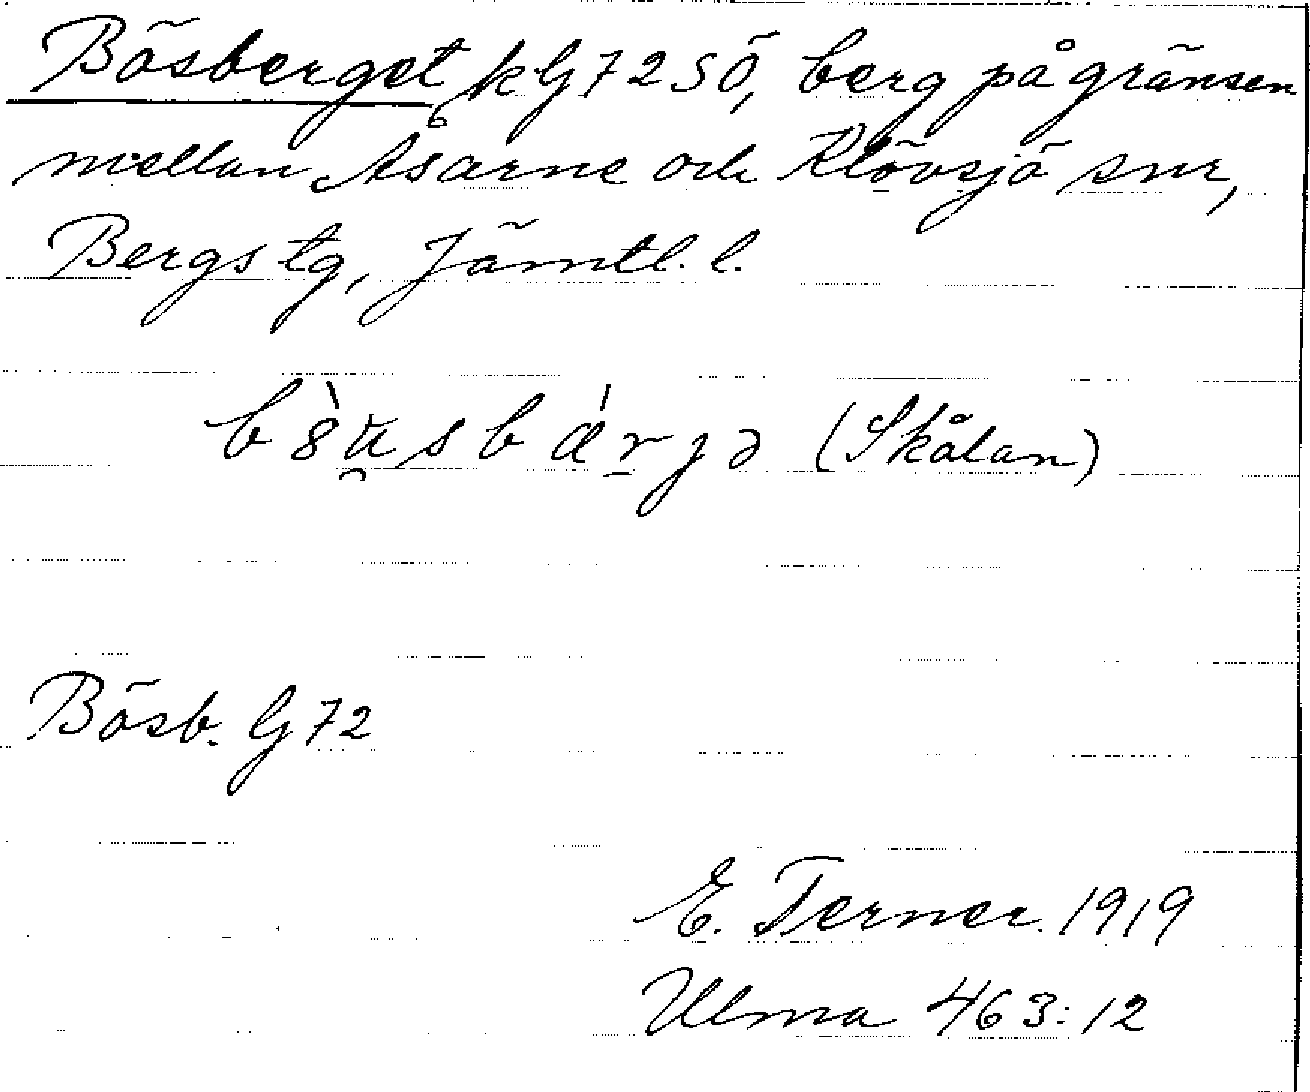 Bösberget kG72SÖ, berg på gränsen
mellan Åsarne och Klövsjö snr,
Bergs tg, Jämtl. l.
(Skålan)
Bösb. G72
E. Terner 1919
Ulma 463:12